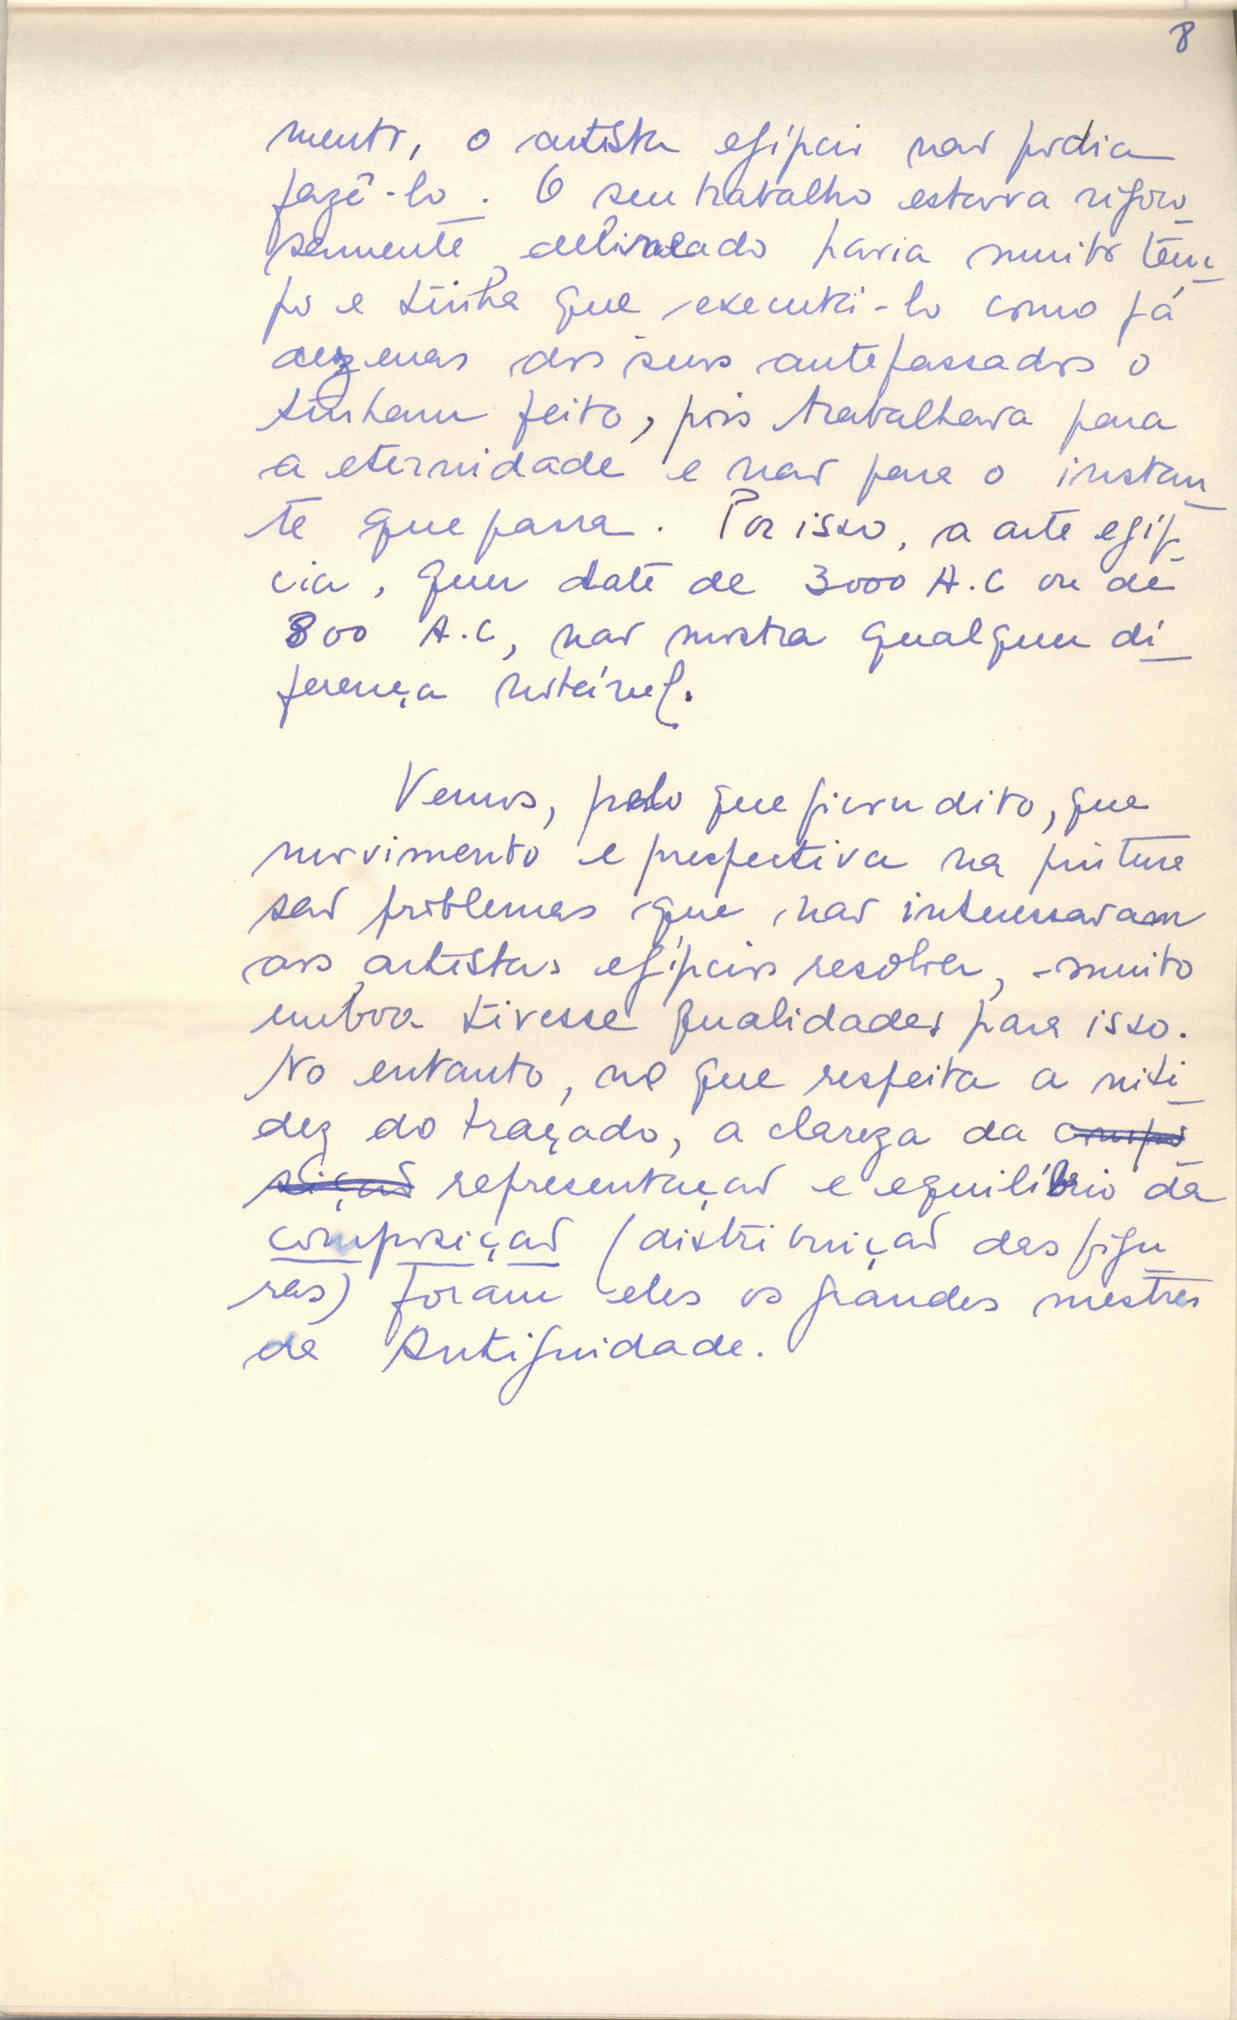 8
mento, o artista egípcio não podia
fazê-lo. O seu trabalho estava rigoro_
samente delineado havia muito tem_
po e tinha que executá-lo como já
dezenas dos seus antepassados o
tinham feito, pois trabalhava para
a eternidade e não para o instan_
te que passa. Por isso, a arte egíp_
cia, quer date de 3000 A.C ou de
800 A.C, não mostra qualquer di_
ferença notável.
Vemos, pelo que ficou dito, que
movimento e prespectiva na pintura
são problemas que não interessavam
aos artistas egípcios resolver, - muito
embora tivesse qualidades para isso.
No entanto, no que respeita a niti_
dez do traçado, a clareza da compo
sição representação e equilíbrio da
composição (distribuição das figu_
ras) foram eles os grandes mestres
da Antiguidade.